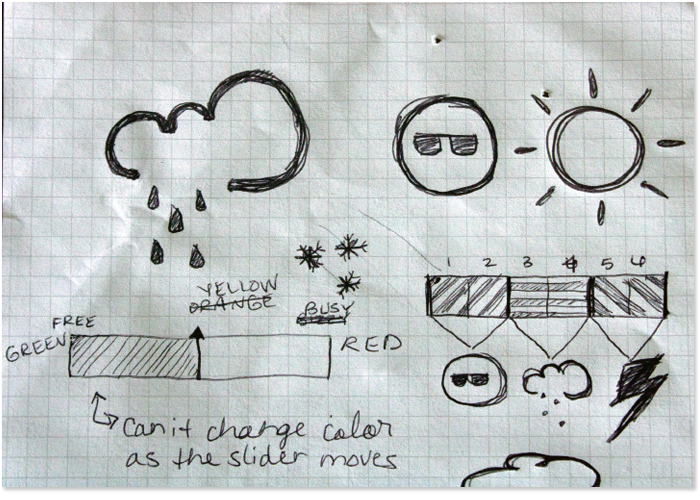 1 2 3 4 5 6
YELLOW
ORANGE
BUSY
FREE
GREEN
RED
Can it change color
as the slider moves